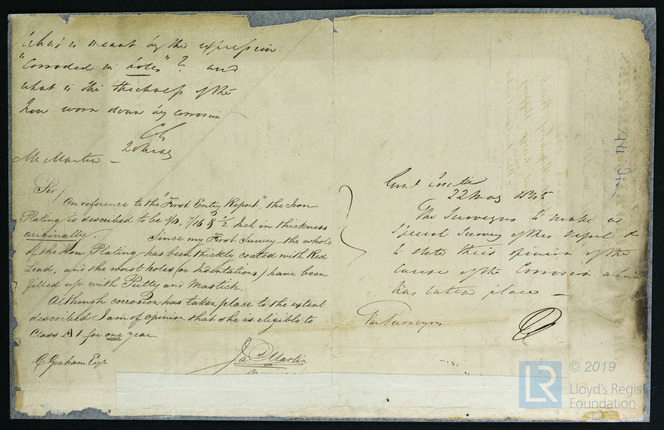 What is meant by the expression
"Corroded in holes"? and
what is the thickness of the
Iron worn down by corrosion
Mr Martin –
Sir,
On reference to the "First Entry Report" the Iron
Plating is described to be 3/8, 7/16 & 1/2 Inch in thickness
originally. Since my First Survey the whole
of the Iron Plating has been thickly coated with Red
Lead, and the worst holes (or Indentations) have been
filled up with Putty and Mastick.
Although corrosion has taken place to the extent
described I am of opinion that she is eligible to
Class A1 for one year
C Graham Esqr
Jas Martin
22 May 1845
The Surveyors to make a
Special Survey of this Vessel &
to state their opinion of the
cause of the Corrosion which
has taken place –
The Surveyors
LR
© 2019
Lloyd's Regist
Foundation